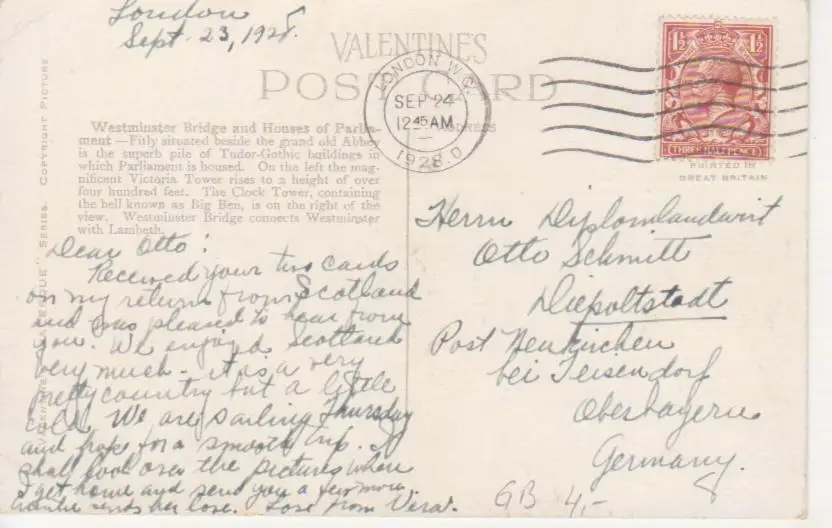 London
Sept. 23, 1928.
VALENTINE'S
POST CARD
LONDON W.C.
SEP 24
12 45 AM
1928
1½ 1½
THREE HALFPENCE
PRINTED IN
GREAT BRITAIN
COPYRIGHT PICTURE
SERIES.
Westminster Bridge and Houses of Parlia-
ment —Fitly situated beside the grand old Abbey
is the superb pile of Tudor-Gothic buildings in
which Parliament is housed. On the left the mag-
nificent Victoria Tower rises to a height of over
four hundred feet. The Clock Tower, containing
the bell known as Big Ben, is on the right of the
view. Westminster Bridge connects Westminster
with Lambeth.
Dear Otto:
Received your two cards
on my return from Scotland
and was pleased to hear from
you. We enjoyed Scotland
very much - it is a very
pretty country but a little
cold. We are sailing Thursday
and hope for a smooth trip. I
shall look over the pictures when
I get home and send you a few more.
sends her love. Love from Vera.
Herrn Diplomlandwirt
Otto Schmitt
Diepoltstadt
Post Neukirchen
bei Teisendorf
Oberbayern
Germany.
GB 4,-